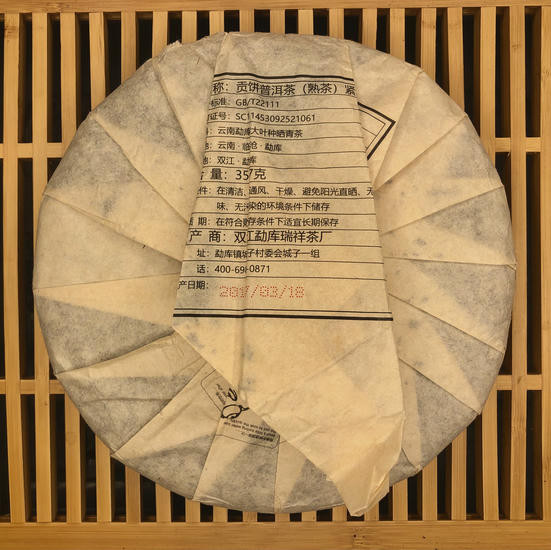 称：贡饼普洱茶（熟茶）紧
标准：GB/T22111
证号：SC11453092521061
云南勐库大叶种晒青茶
地：云南·临沧·勐库
地：双江·勐库
含量：357克
件：在清洁、通风、干燥、避免阳光直晒、无
味、无污染的环境条件下储存
期：在符合贮存条件下适宜长期保存
产 商：双江勐库瑞祥茶厂
址：勐库镇城子村委会城子一组
话：400-690-0871
产日期：
2017/03/18